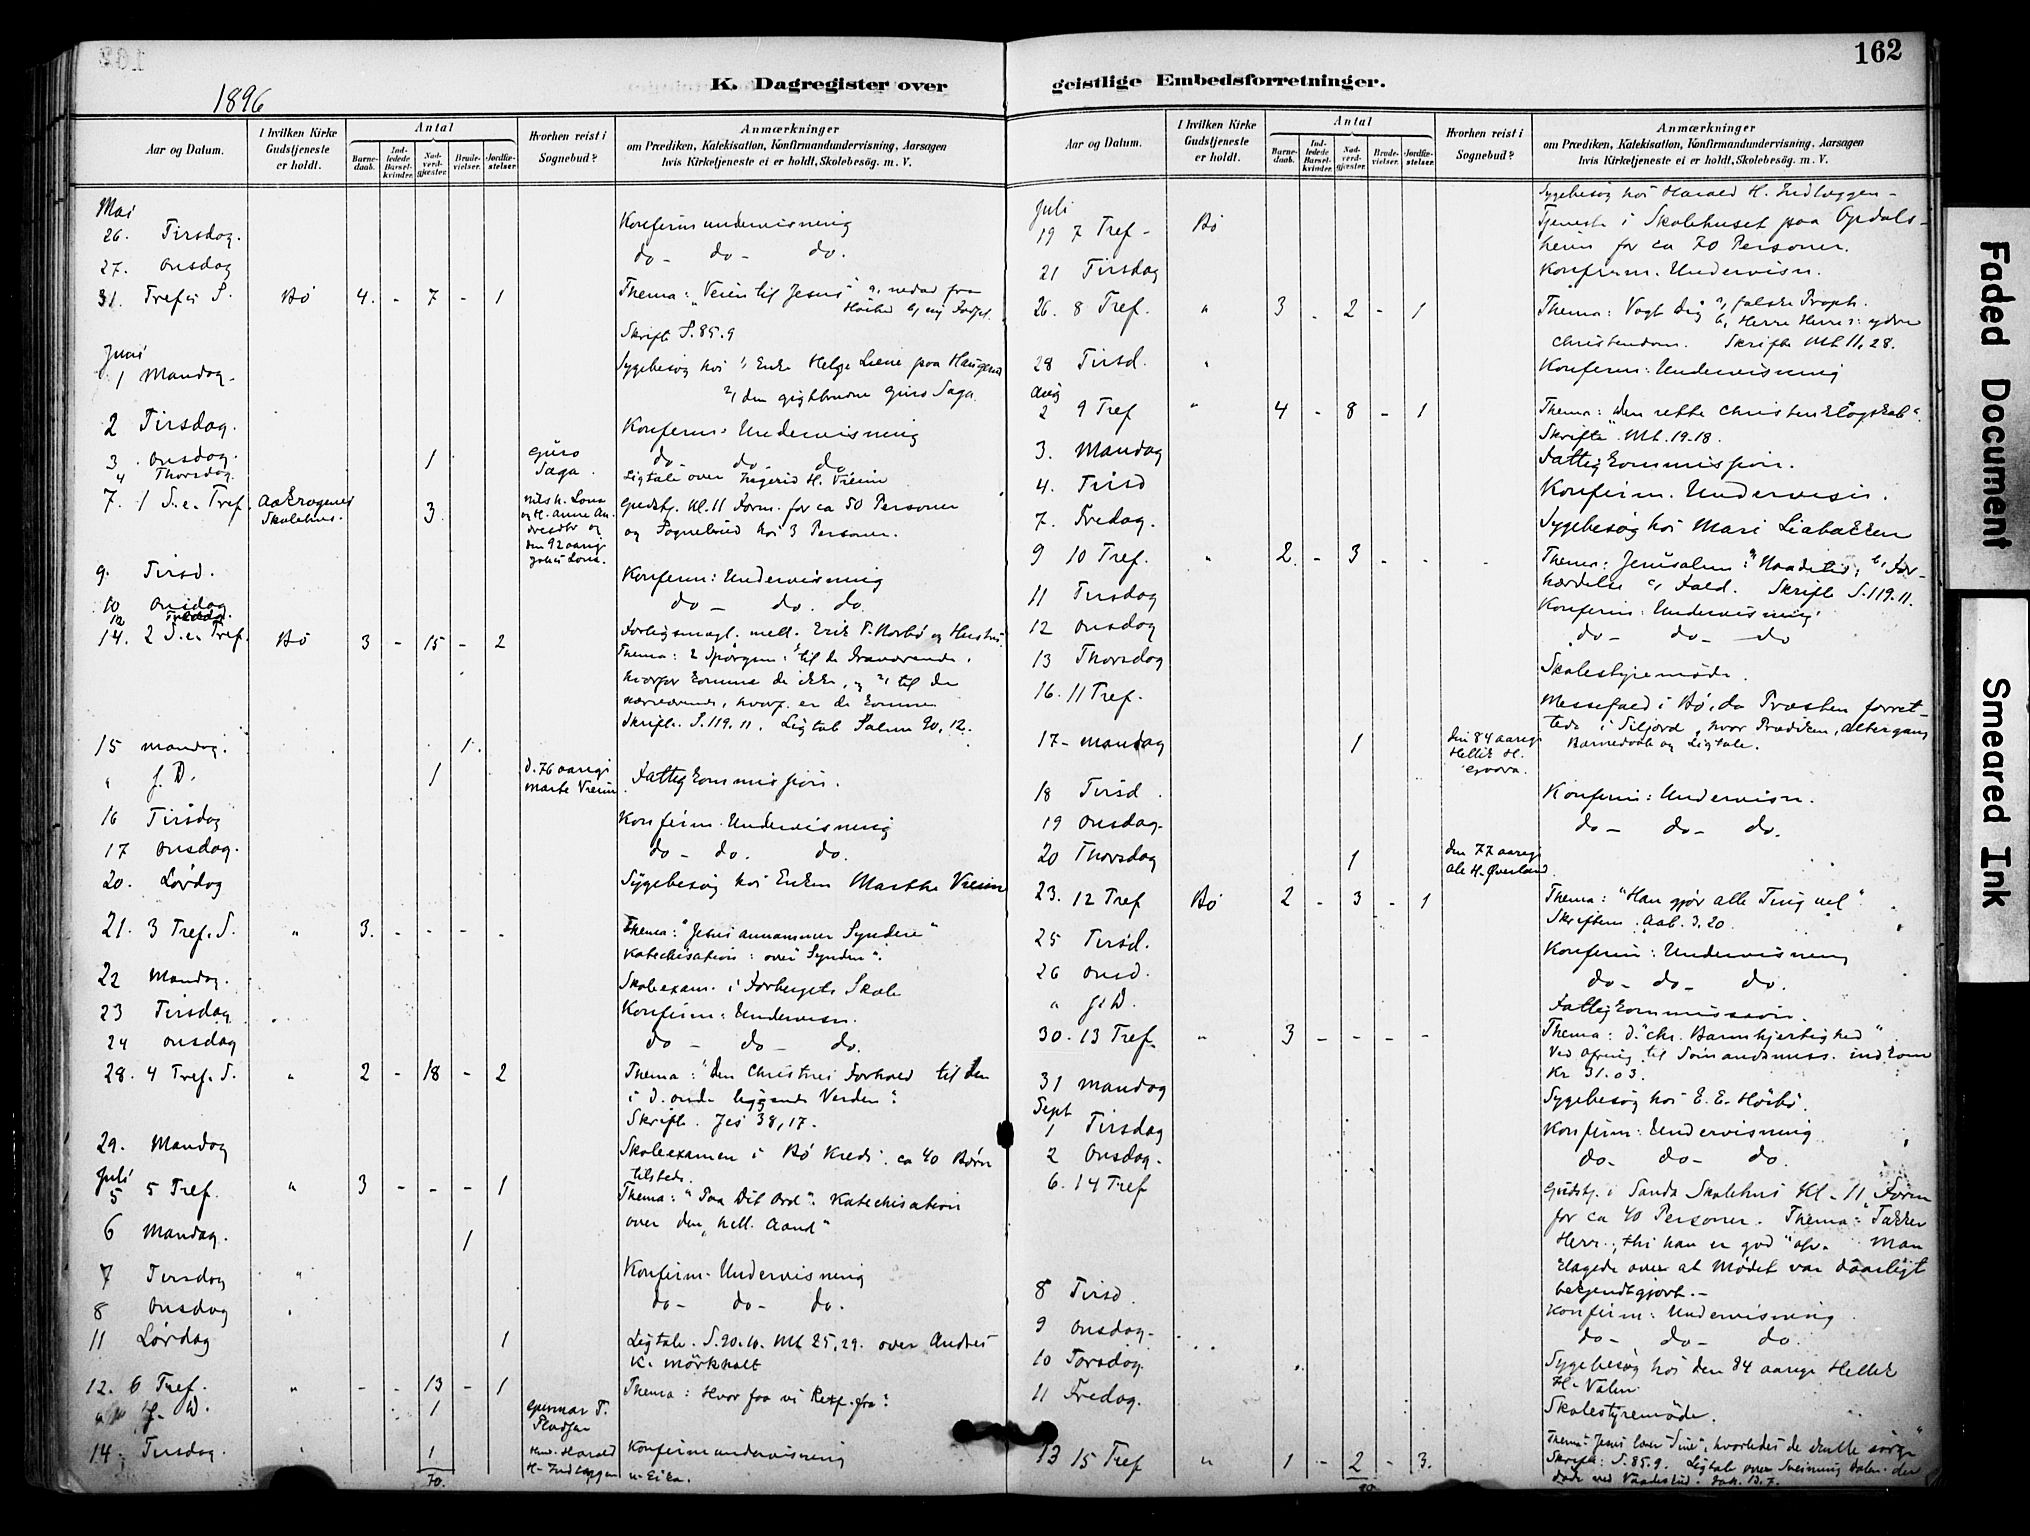 162
K. Dagregister over
geistlige Embedsforretninger.
1896
Aar og Datum.
I hvilken Kirke Gudstjeneste er holdt.
Antal
Barnedaab.
Indledede Barselkvinder.
Nadverdgjæster.
Brudevielser.
Jordfæstelser.
Hvorhen reist i Sognebud?
Anmærkninger
om Prædiken, Katekisation, Konfirmandundervisning, Aarsagen
hvis Kirketjeneste ei er holdt, Skolebesög. m. V.
Mai
26. Tirsdag. Konfirmundervisning
27. Onsdag do - do - do.
31. Trefis S. Bö 4. - 7 - 1 Thema: "Veien til Jesus"
Skrifte S. 85.9
Juni
1 Mandag. Sygebesøg hos 1, Enke Helge Liene paa Haugene
2, den gigtbrudne Guro Saga
2 Tirsdag. Konferm. Undervisning
3. Onsdag. 1 Guro Saga. do. do. do
4 Thorsdag Ligtale over Ingerid H. Vreim
7. 1 S. e. Tref. Skolehus. 3 Gudstj. Kl. 11 Form. for ca 50 Personer
og Sognebud hos 3 Personer.
9. Tirsd. Konferm: Undervisning
10 Onsdag do - do. do.
12
14. 2 S. e. Tref. Bö 3 - 15 - 2 Forligsmægl. mell. Erik T. Norbø og Hustru
Thema: 2 Spørgsm: til de fraværende,
hvorfor komme de ikke, og 2, til de
nærværende, hvorf. er de komne
Skrifte. S. 119.11. Ligtale Salme 90, 12.
15 Mandag. 1.
" s. D. 1 d. 76 aarige Marte Vreim Fattigkommission.
16 Tirsdag Konfirm. Undervisning
17 Onsdag. do - do. do.
20. Lørdag Sygebesøg hos Enken Marthe Vreim
21. 3 Tref. S. " 3. - - - - Thema: "Jesus annammer Syndere"
Katechisation: over "Synden".
22 Mandag. Skoleexam. i Forbergets Skole
23 Tirsdag Konfirm: Undervisn.
24 Onsdag do - do - do.
28. 4 Tref. S. " 2 - 18 - 2 Thema: "Den Christnes Forhold til den
i d. onde liggende Verden".
Skrifte. Jes 38, 17.
29. Mandag Skoleexamen i Bö Kreds. ca 40 Børn
tilstede.
Juli
5 5 Tref. " 3 - - - 1 Thema: "Paa Dit Ord". Katechisation
over den "hell. Aand"
6 Mandag. 1
7 Tirsdag " Konfirm. Undervisning
8 Onsdag do - do - do.
11 Lørdag 1 Ligtale. S. 90.10. Mt 25,29. over Andres
K. Mörkholt
12. 6 Tref. " - - 13 - 1 Thema: Hvor faa vi Retf. fra?
" s. D. 1 Gunnar T.
14. Tirsdag. 1 Harald H. Indlæggen Konfirmundervisning
70.
Aar og Datum.
I hvilken Kirke Gudstjeneste er holdt.
Antal
Barnedaab.
Indledede Barselkvinder.
Nadverdgjæster.
Brudevielser.
Jordfæstelser.
Hvorhen reist i Sognebud?
Anmærkninger
om Prædiken, Katekisation, Konfirmandundervisning, Aarsagen
hvis Kirketjeneste ei er holdt, Skolebesög. m. V.
Sygebesøg hos Harald H. Indlæggen -
Juli
19 7 Tref - Bö Tjeneste i Skolehuset paa Opdals-
heim for ca 70 Personer.
21 Tirsdag Konfirm. Undervisn.
26. 8 Tref. " 3 - 2 - 1 Thema: Vogt dig a, falske Proph.
b, Herre Herre: ydre
Christendom. Skrifte Mt 11, 28.
28 Tirsd. " Konferm: Undervisning
Aug
2 9 Tref " 4 - 8 - 1 Thema: "Den rette christen Klogskab".
Skrifte. Mt. 19-18.
3. Mandag Fattigkommission.
4. Tirsd Konfirm. Undervisn.
7. Fredag. Sygebesøg hos Mari Liabakken
9 10 Tref. " 2. - 3 - - Thema: Jerusalem: a, Naadetid, b, For-
hærdelse c, Fald. Skrifte S. 119.11.
11 Tirsdag Konfirm: Undervisning
12 Onsdag do - do - do
13 Thorsdag Skolestyremøde.
16. 11 Tref. Messefald i Bö, da Præsten forret-
tede i Siljord, hvor Prædiken, Altergang
Barnedaab og Ligtale.
17 - Mandag 1 den 84 aarige Hellik H.
18 Tirsd. Konferm: Undervisn.
19 Onsdag. do - do - do.
20 Thorsdag 1 den 77 aarige Ole H. Øverland.
23. 12 Tref Bö 2 - 3 - 1 Thema: "Han gjør alle Ting vel"
Skriftem. Aab. 3.20.
25 Tirsd. Konferm: Undervisning
26 Onsd. do - do - do.
" s. D. Fattigkommission.
30. 13 Tref. " 3 - - - - Thema: d. "chr. Barmhjertighed"
Ved Ofring til Sömandsmiss. indkom
Kr 31.03.
31 Mandag Sygebesøg hos E. E. Høibö.
Sept
1 Tirsdag Konfirm: Undervisning
2 Onsdag. do - do - do.
6. 14 Tref Gudstj. i Sanda Skolehus Kl. 11 Form
for ca 40 Personer. Thema: "Takker
Herr., thi han er god" osv. Man
klagede over at Mødet var daarligt
bekjendtgjort. -
8 Tirsd. Konfirm: Undervisning
9 Onsdag. do - do - do.
10 Torsdag. Sygebesøg hos den 84 aarige Hellik
H. Valen
11 Fredag. Skolestyremøde.
13 15 Tref " 1 - 2 - 3. Thema: Jesus lærer Sine, hvorledes de skulle sørge
Skrifte: S. 85.9. Ligtale over Sveinung Dalen. der
døde ved Vaadeskud. Joh. 13.7.
Faded Document
Smeared Ink